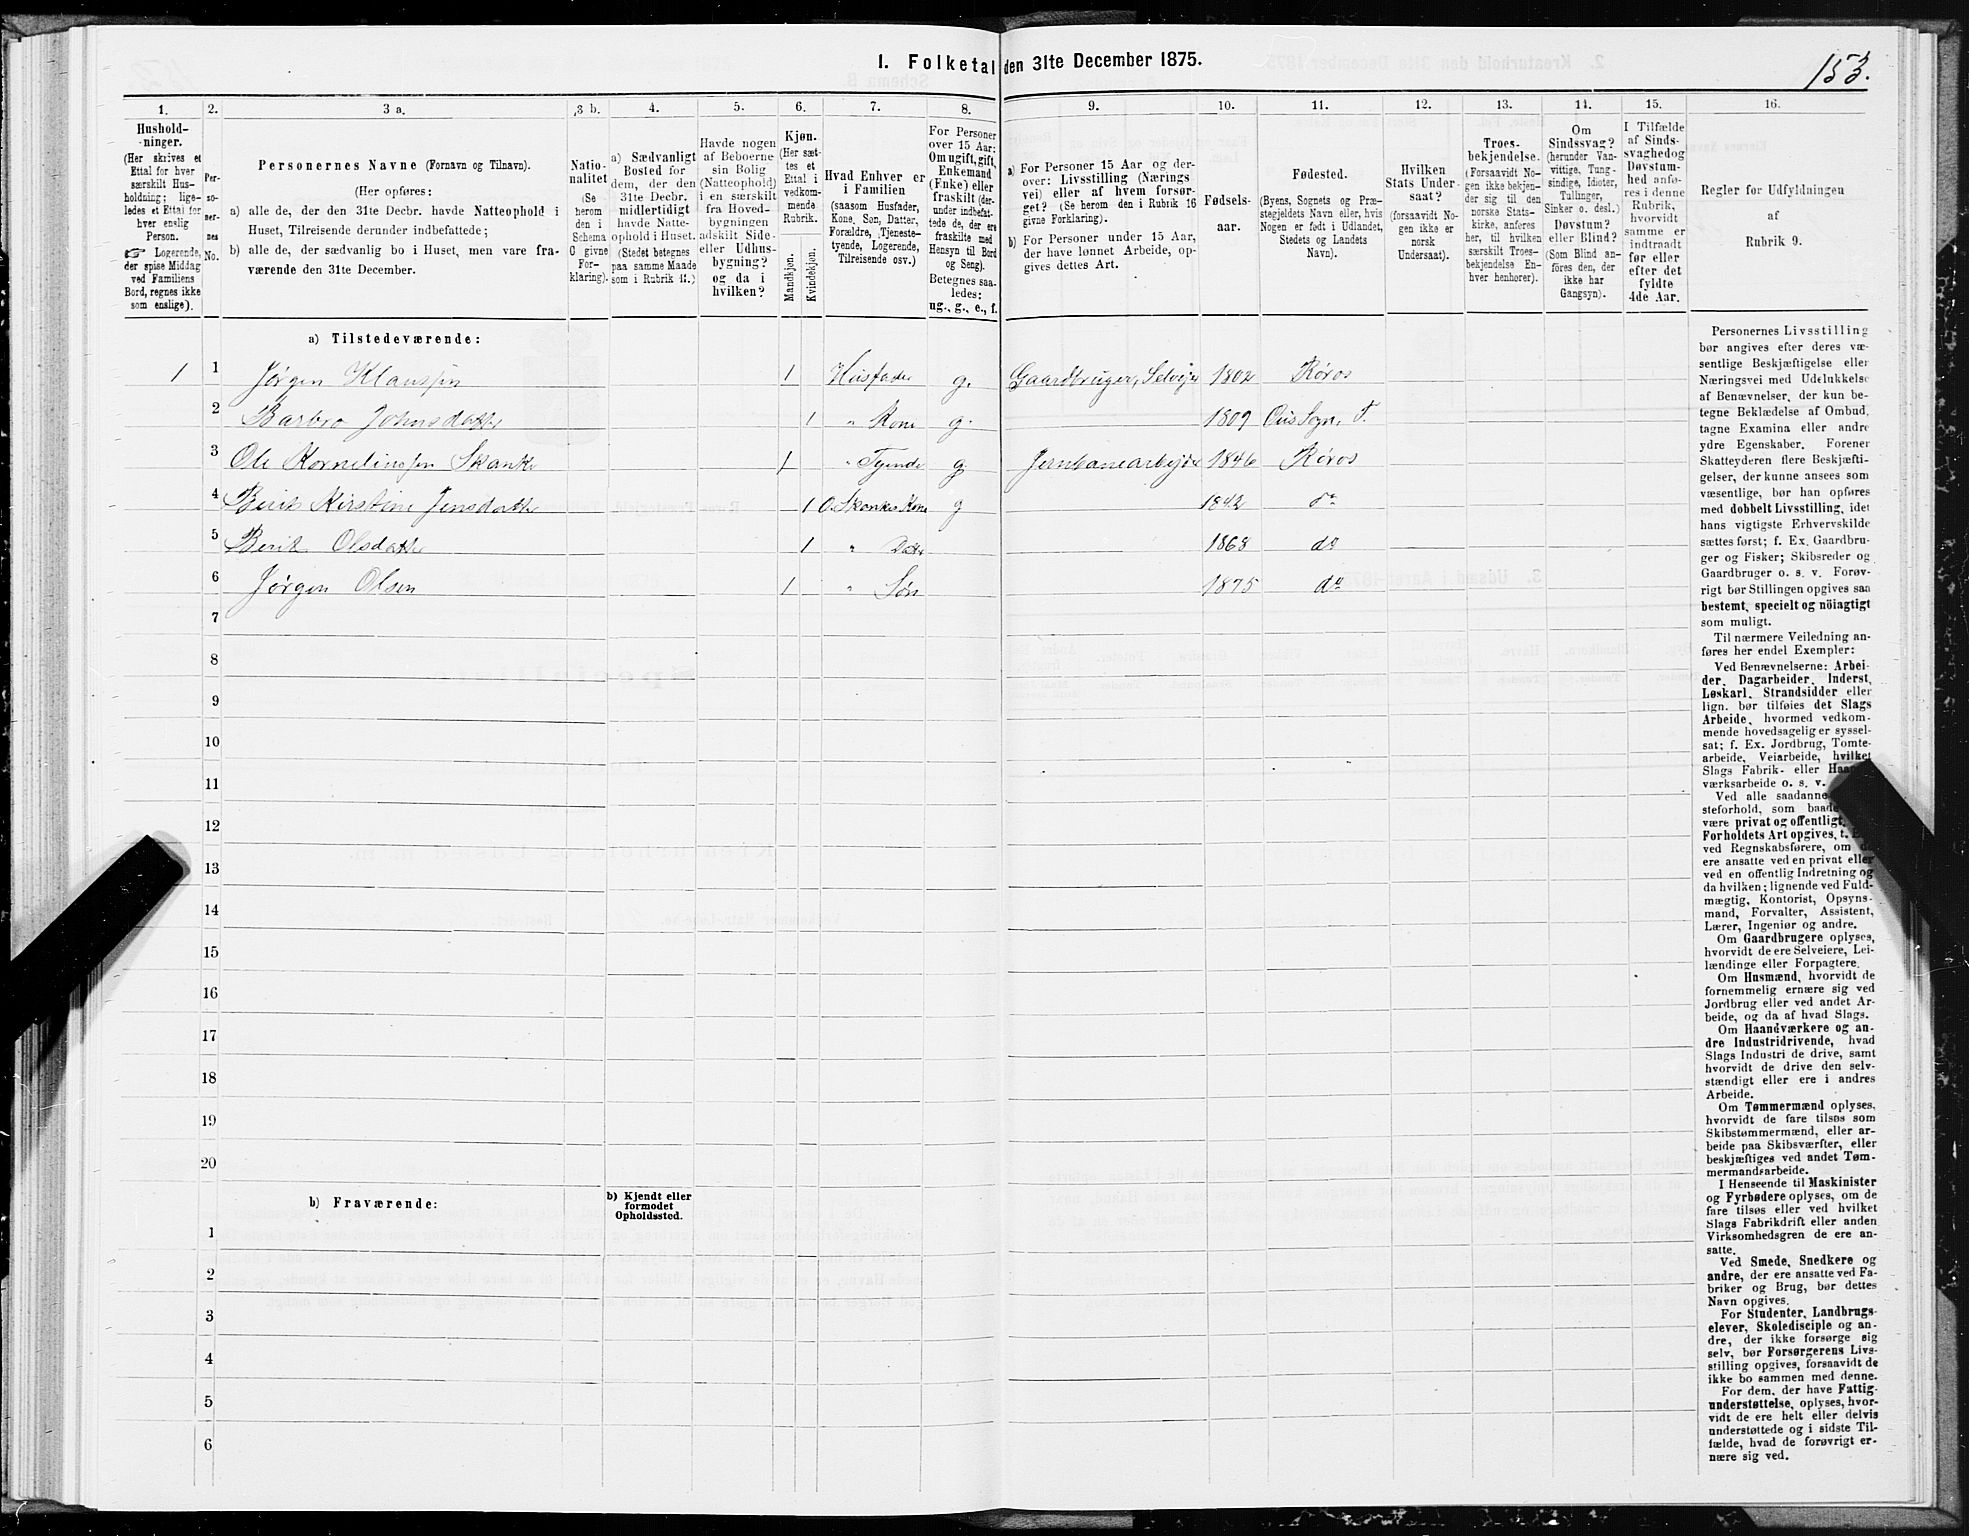 153.
1. Folketal den 31te December 1875.
1. 2. 3 a. 3 b. 4. 5. 6. 7. 8. 9. 10. 11. 12. 13. 14. 15. 16.
Hushold-
ninger.
(Her skrives et
Ettal for hver
særskilt Hus-
holdning; lige-
ledes et Ettal for
hver enslig
Person.
☞ Logerende,
der spise Middag
ved Familiens
Bord, regnes ikke
som enslige).
Per-
so-
ner-
nes
No.
Personernes Navne (Fornavn og Tilnavn).
(Her opføres:
a) alle de, der den 31te Decbr. havde Natteophold i
Huset, Tilreisende derunder indbefattede;
b) alle de, der sædvanlig bo i Huset, men vare fra-
værende den 31te December.
Natio-
nalitet
(Se
herom
den i
Schema
C givne
For-
klaring).
a) Sædvanligt
Bosted for
dem, der den
31te Decbr.
midlertidigt
havde Natte-
ophold i Huset.
(Stedet betegnes
paa samme Maade
som i Rubrik 11.)
Havde nogen
af Beboerne
sin Bolig
(Natteophold)
i en særskilt
fra Hoved-
bygningen
adskilt Side-
eller Udhus-
bygning?
og da i
hvilken?
Kjøn.
(Her sæt-
tes et
Ettal i
vedkom-
mende
Rubrik.
Mandkjøn.
Kvindekjøn.
Hvad Enhver er
i Familien
(saasom Husfader,
Kone, Søn, Datter,
Forældre, Tjeneste-
tyende, Logerende,
Tilreisende osv.)
For Personer
over 15 Aar:
Om ugift, gift,
Enkemand
(Enke) eller
fraskilt (der-
under indbefat-
tede de, der ere
fraskilte med
Hensyn til Bord
og Seng).
Betegnes saa-
ledes:
ug., g., e., f.
a) For Personer 15 Aar og der-
over: Livsstilling (Nærings-
vei) eller af hvem forsør-
get? (Se herom den i Rubrik 16
givne Forklaring).
b) For Personer under 15 Aar,
der have lønnet Arbeide, op-
gives dettes Art.
Fødsels-
aar.
Fødested.
(Byens, Sognets og Præ-
stegjeldets Navn eller, hvis
Nogen er født i Udlandet,
Stedets og Landets
Navn).
Hvilken
Stats Under-
saat?
(forsaavidt No-
gen ikke er
norsk
Undersaat).
Troes-
bekjendelse.
(Forsaavidt No-
gen ikke bekjen-
der sig til den
norske Stats-
kirke, anføres
her, til hvilken
særskilt Troes-
bekjendelse En-
hver henhører).
Om
Sindssvag?
(herunder Van-
vittige, Tung-
sindige, Idioter,
Tullinger,
Sinker o. desl.)
Døvstum?
eller Blind?
(Som Blind an-
føres den, der
ikke har
Gangsyn).
I Tilfælde
af Sinds-
svaghed og
Døvstum-
hed anfø-
res i denne
Rubrik,
hvorvidt
samme er
indtraadt
før eller
efter det
fyldte
4de Aar.
Regler for Udfyldningen
af
Rubrik 9.
a) Tilstedeværende:
1 1 Jørgen Klaussen 1 Husfader g. Gaardbruger, Selveier 1802 Røros
2 Barbro Johnsdatter 1 " Kone g. 1809 Sogn, T.
3 Ole Kornelinssen Skanke 1 " Tyende g. Jernbanearbejder 1846 Røros
4 Berit Kirstine Jensdatter 1 O. Skankes Kone g 1842 do
5 Berit Olsdatter 1 " Datter 1868 do
6 Jørgen Olsen 1 " Søn 1875 do
7
8
9
10
11
12
13
14
15
16
17
18
19
20
b) Fraværende:
b) Kjendt eller
formodet
Opholdssted.
1
2
3
4
5
6
Personernes Livsstilling
bør angives efter deres væ-
sentlige Beskjæftigelse eller
Næringsvei med Udelukkelse
af Benævnelser, der kun be-
tegne Beklædelse af Ombud,
tagne Examina eller andre
ydre Egenskaber. Forener
Skatteyderen flere Beskjæfti-
gelser, der kunne ansees som
væsentlige, bør han opføres
med dobbelt Livsstilling, idet
hans vigtigste Erhvervskilde
sættes først; f. Ex. Gaardbru-
ger og Fisker; Skibsreder og
Gaardbruger o. s. v. Forøv-
rigt bør Stillingen opgives saa
bestemt, specielt og nöiagtigt
som muligt.
Til nærmere Veiledning an-
føres her endel Exempler:
Ved Benævnelserne: Arbei-
der, Dagarbeider, Inderst,
Løskarl, Strandsidder eller
lign. bør tilføies det Slags
Arbeide, hvormed vedkom-
mende hovedsagelig er syssel-
sat; f. Ex. Jordbrug, Tomte-
arbeide, Veiarbeide, hvilket
Slags Fabrik- eller
værksarbeide o. s. v.
Ved alle saadanne
steforhold, som baade
være privat og offentligt,
Forholdets Art opgives, t. E.
ved Regnskabsførere, om de
ere ansatte ved en privat eller
ved en offentlig Indretning og
da hvilken; lignende ved Fuld-
mægtig, Kontorist, Opsyns-
mand, Forvalter, Assistent,
Lærer, Ingeniør og andre.
Om Gaardbrugere oplyses,
hvorvidt de ere Selveiere, Lei-
lændinge eller Forpagtere.
Om Husmænd, hvorvidt de
fornemmelig ernære sig ved
Jordbrug eller ved andet Ar-
beide, og da af hvad Slags.
Om Haandværkere og an-
dre Industridrivende, hvad
Slags Industri de drive, samt
hvorvidt de drive den selv-
stændigt eller ere i andres
Arbeide.
Om Tømmermænd oplyses,
hvorvidt de fare tilsøs som
Skibstømmermænd, eller ar-
beide paa Skibsværfter, eller
beskjæftiges ved andet Tøm-
mermandsarbeide.
I Henseende til Maskinister
og Fyrbødere oplyses, om de
fare tilsøs eller ved hvilket
Slags Fabrikdrift eller anden
Virksomhedsgren de ere an-
satte.
Ved Smede, Snedkere og
andre, der ere ansatte ved Fa-
briker og Brug, bør dettes
Navn opgives.
For Studenter, Landbrugs-
elever, Skoledisciple og an-
dre, der ikke forsørge sig
selv, bør Forsørgerens Livs-
stilling opgives, forsaavidt de
ikke bo sammen med denne.
For dem, der have Fattig-
understøttelse, oplyses, hvor-
vidt de ere helt eller delvis
understøttede og i sidste Til-
fælde, hvad de forøvrigt er-
nære sig ved.